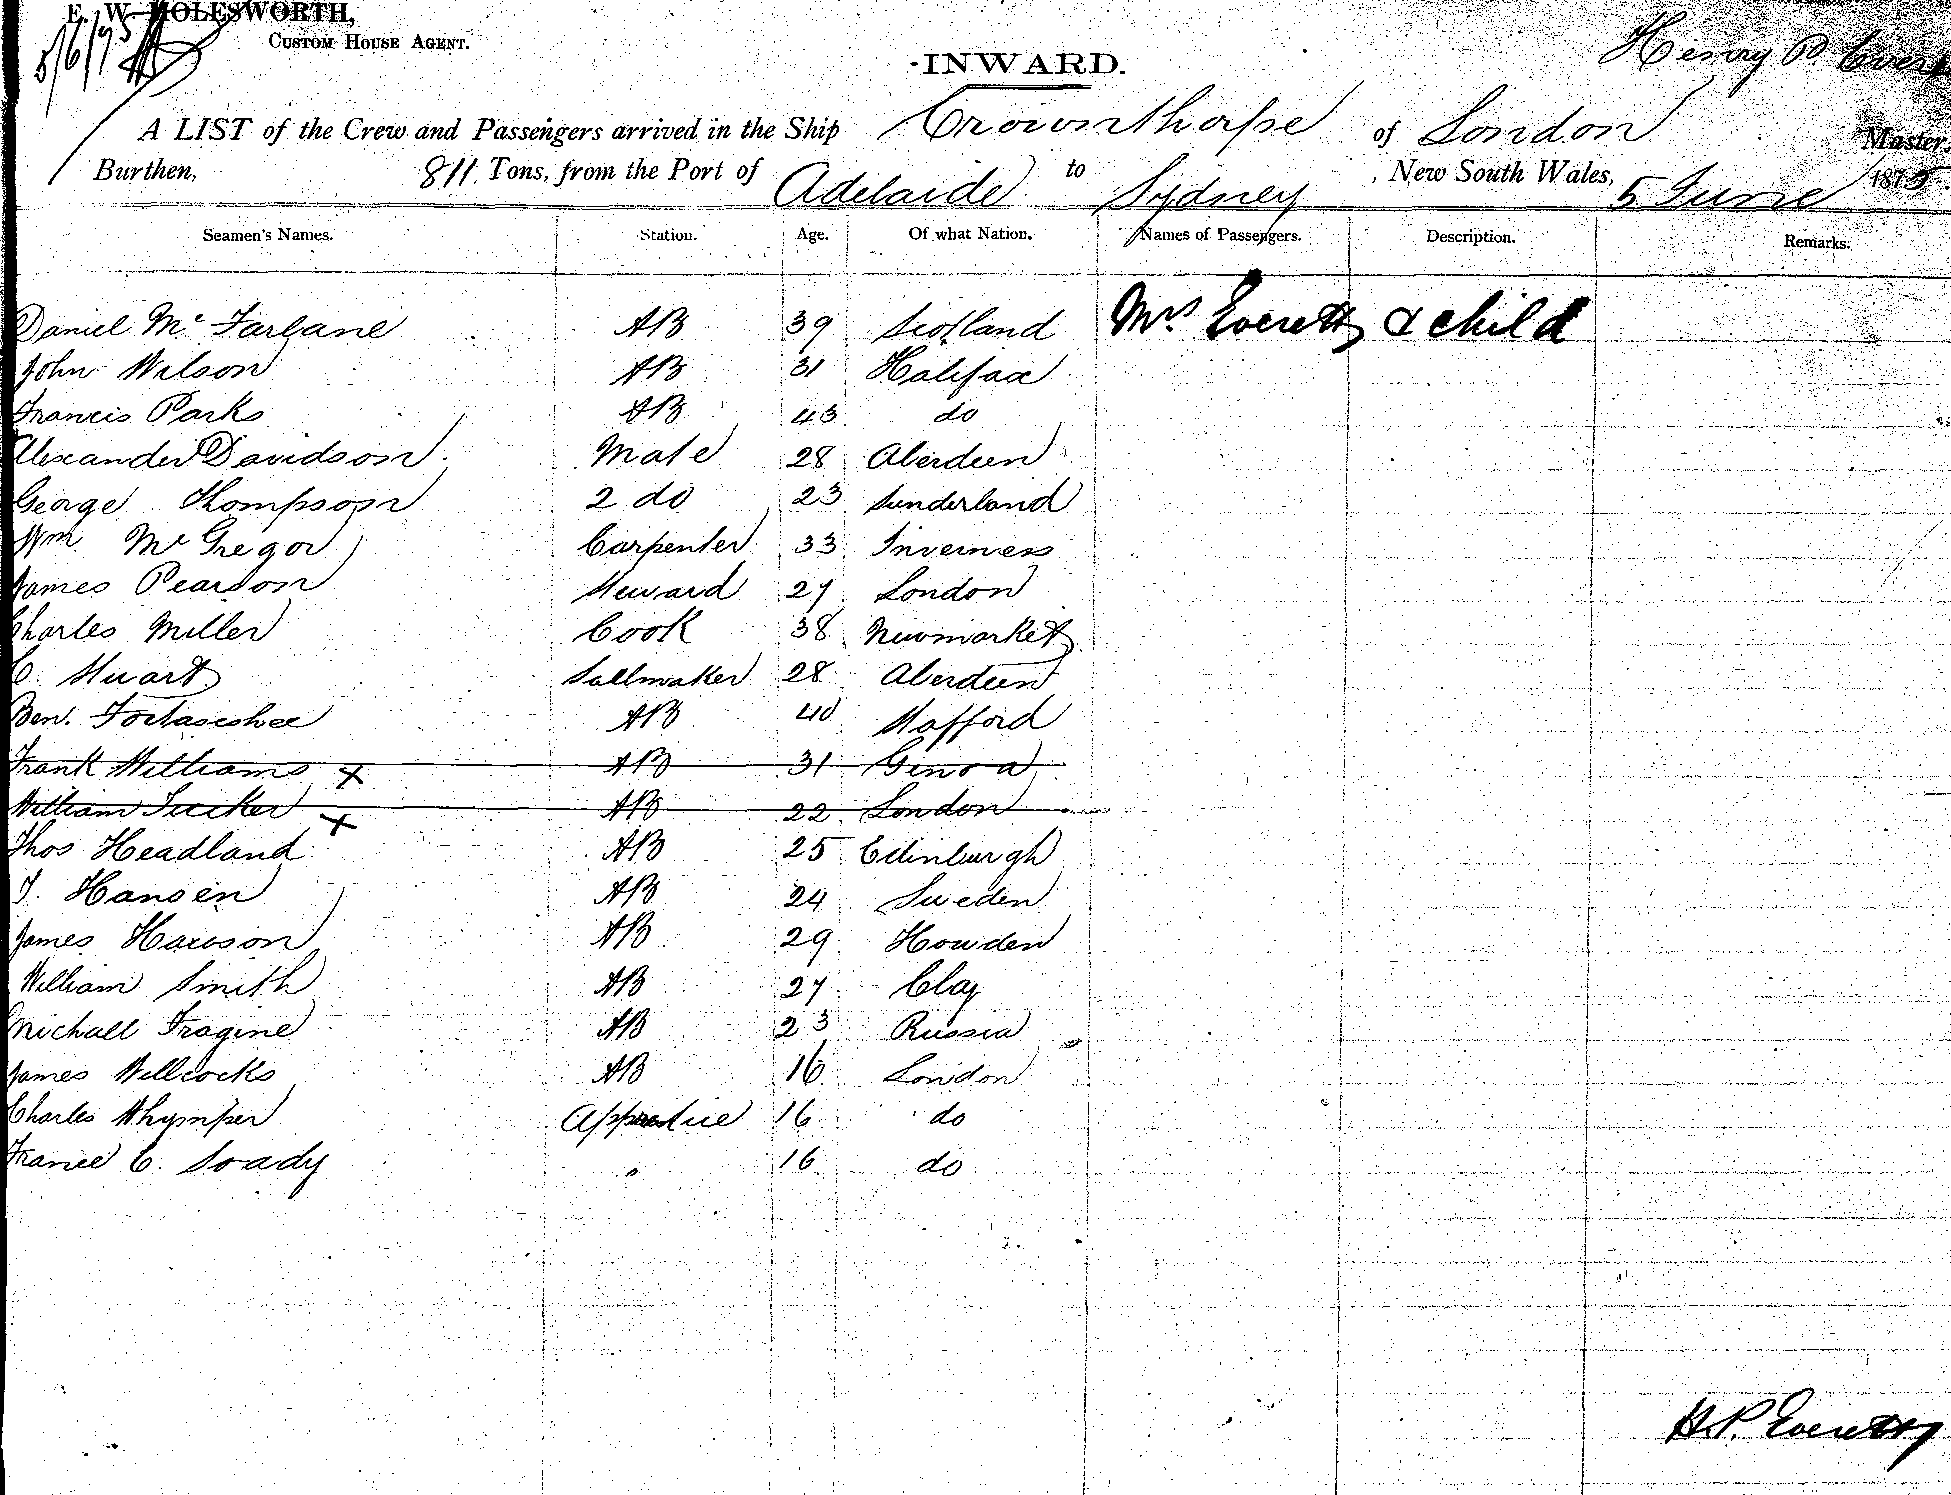 E. W. MOLESWORTH,
CUSTOM HOUSE AGENT.
5/6/75
-INWARD.
Henry P Everett
A LIST of the Crew and Passengers arrived in the Ship Crownthorpe of London Master,
Burthen, 811 Tons, from the Port of Adelaide to Sydney, New South Wales, 5 June 1875
Seamen's Names. Station. Age. Of what Nation. Names of Passengers. Description. Remarks.
Daniel McFarlane AB 39 Scotland Mrs Everett & child
John Wilson AB 31 Halifax
Francis Parks AB 43 do
Alexander Davidson Mate 28 Aberdeen
George Thompson 2 do 23 Sunderland
Wm McGregor Carpenter 33 Inverness
James Pearson Steward 27 London
Charles Miller Cook 38 Newmarket
C. Stuart Sailmaker 28 Aberdeen
Ben. AB 40 Stafford
Frank Williams x AB 31 Genoa
William Tucker x AB 22 London
Thos Headland AB 25 Edinburgh
T. Hansen AB 24 Sweden
James Hawson AB 29 Howden
William Smith AB 27 Clay
Michall Fragine AB 23 Russia
James Willcocks AB 16 London
Charles Whymper Apprentice 16 do
France C. Soady " 16 do
H.P. Everett